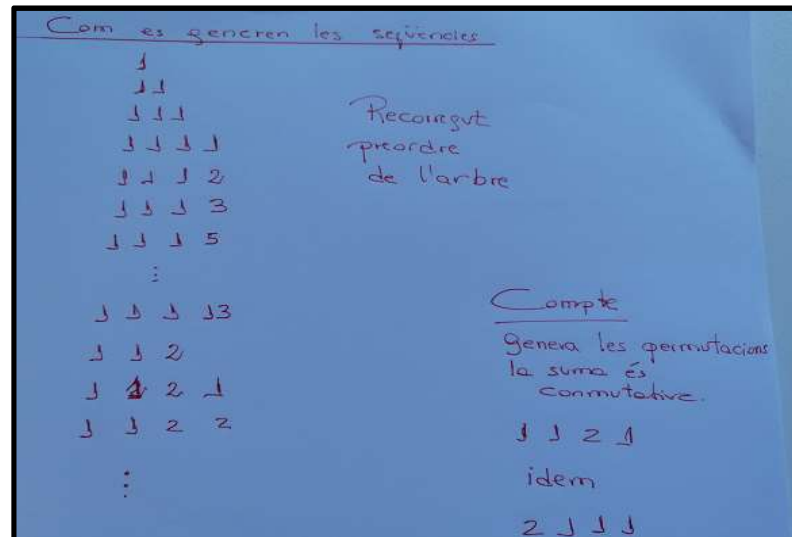 Com es generen les seqüències
1
1 1
1 1 1
1 1 1 1
1 1 1 2
1 1 1 3
1 1 1 5
⋮
1 1 1 13
1 1 2
1 1 2 1
1 1 2 2
⋮
Recorregut
preordre
de l'arbre
Compte
genera les permutacions
la suma és
conmutative.
1 1 2 1
idem
2 1 1 1